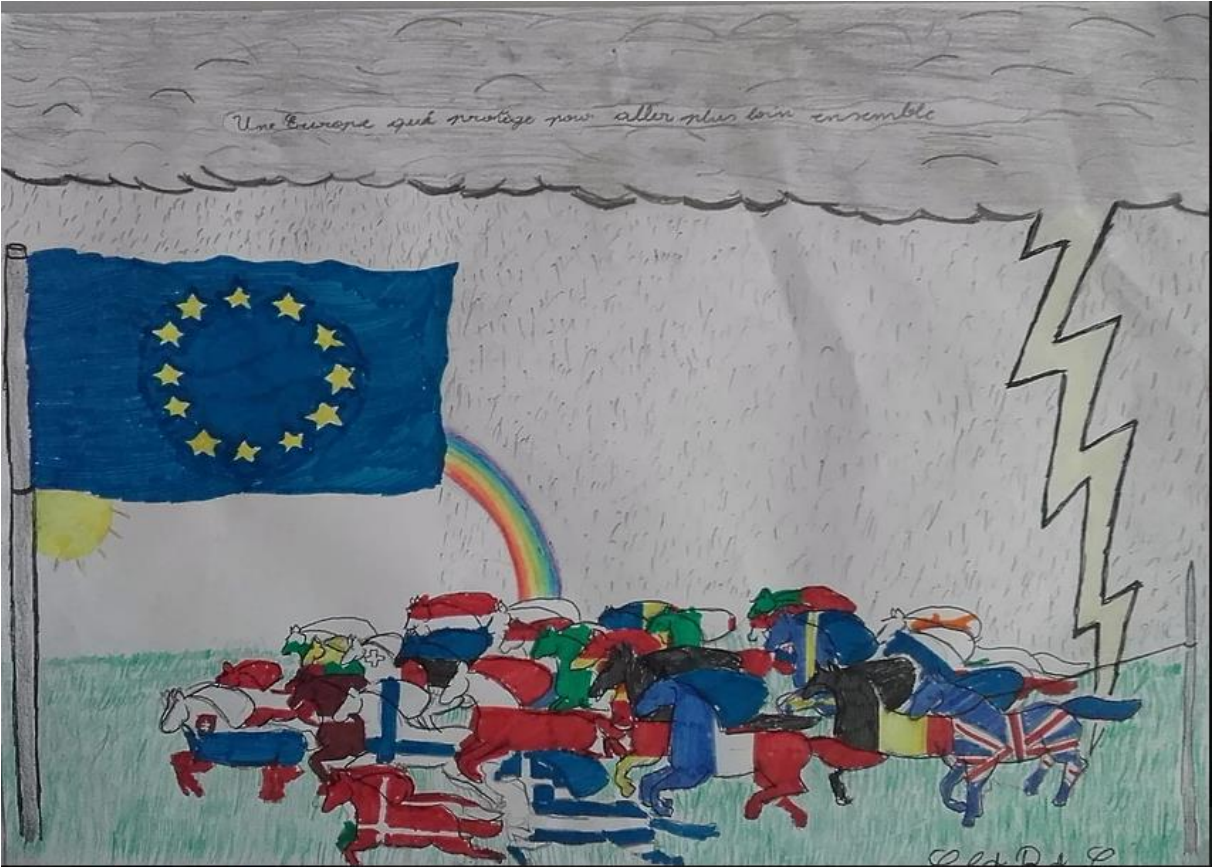 Une Europe qui protège pour aller plus loin ensemble